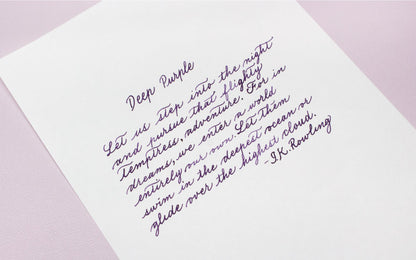 Deep Purple
Let us step into the night
and pursue that flighty
temptress, adventure. For in
dreams, we enter a world
entirely our own. Let them
swim in the deepest ocean or
glide over the highest cloud.
-J.K. Rowling